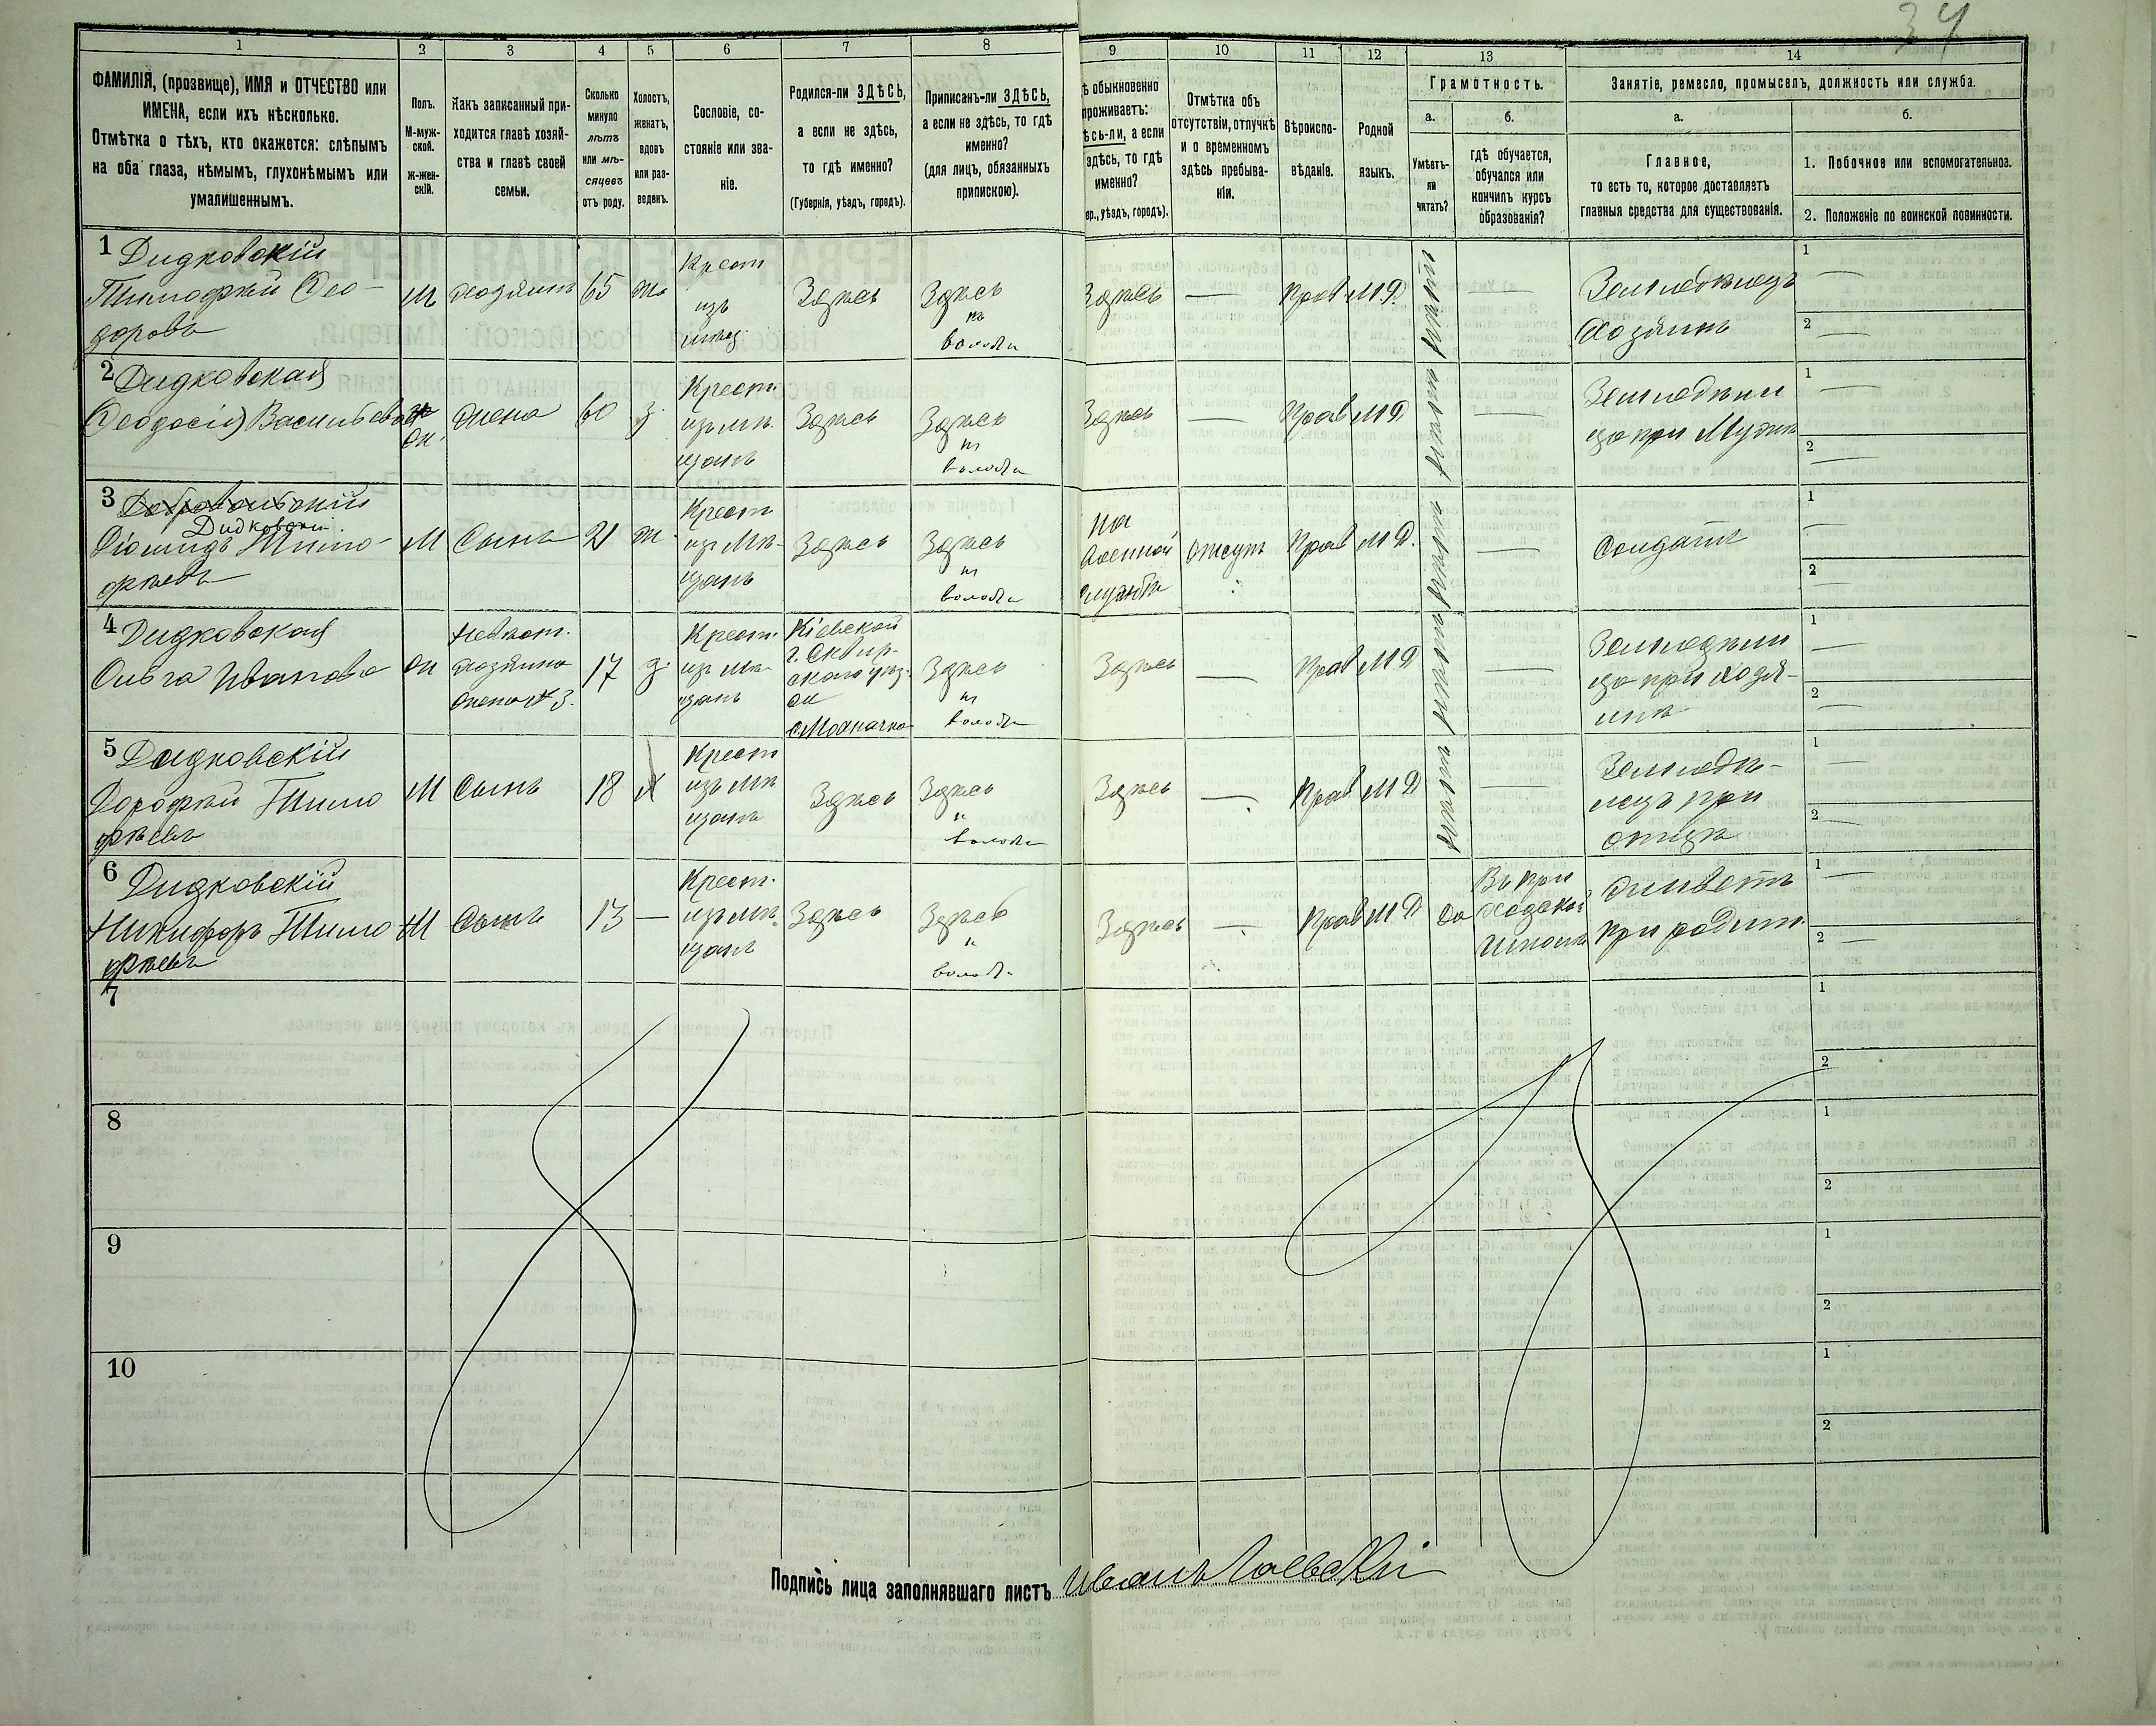 34
1 2 3 4 5 6 7 8 9 10 11 12 13 14
ФАМИЛІЯ, (прозвище), ИМЯ и ОТЧЕСТВО или
ИМЕНА, если ихъ нѣсколько.
Отмѣтка о тѣхъ, кто окажется: слѣпымъ
на оба глаза, нѣмымъ, глухонѣмымъ или
умалишеннымъ.
Полъ.
М-муж-
ской.
Ж-жен-
скій.
Какъ записанный при-
ходится главѣ хозяй-
ства и главѣ своей
семьи.
Сколько
минуло
лѣтъ
или мѣ-
сяцевъ
отъ роду.
Холостъ,
женатъ,
вдовъ
или раз-
веденъ.
Сословіе, со-
стояніе или зва-
ніе.
Родился-ли ЗДѢСЬ,
а если не здѣсь,
то гдѣ именно?
(Губернія, уѣздъ, городъ).
Приписанъ-ли ЗДѢСЬ,
а если не здѣсь, то гдѣ
именно?
(для лицъ, обязанныхъ
припискою).
ѣ обыкновенно
проживаетъ:
ѣсь-ли, а если
здѣсь, то гдѣ
именно?
ер., уѣздъ, городъ).
Отмѣтка объ
отсутствіи, отлучкѣ
и о временномъ
здѣсь пребыва-
ніи.
Вѣроиспо-
вѣданіе.
Родной
языкъ.
Грамотность.
а.
Умѣетъ-
ли
читать?
б.
гдѣ обучается,
обучался или
кончилъ курсъ
образованія?
Занятіе, ремесло, промыселъ, должность или служба.
а.
Главное,
то есть то, которое доставляетъ
главныя средства для существованія.
б.
1. Побочное или вспомогательное.
2. Положеніе по воинской повинности.
1 Дидковскій
Тимофѣй Ѳео-
доровъ
м
хозяинъ
65
ж.
Крест
изъ
мѣщ.
Здѣсь
Здѣсь
въ
волости
Здѣсь
—
Прав
М Р.
—
Земледѣлецъ
Хозяинъ
1 —
2 —
2 Дидковская
Ѳеодосія Васильева
ж.
жена
60
з.
Крест.
изъ мѣ
щанъ
Здѣсь
Здѣсь
въ
волости
Здѣсь
—
Прав
М Р.
—
Земледѣли
ца при Мужѣ
1 —
2 —
3
Дидковскій
Діомидъ Тимо-
фѣевъ
М
Сынъ
21
ж.
Крест
изъ Мѣ-
щанъ
Здѣсь
Здѣсь
въ
волости
на
военной
службѣ
отсут
Прав
М Р.
—
Солдатъ
1 —
2 —
4 Дидковская
Ольга Иванова
ж
Невѣст.
хозяина
жена № 3.
17
з.
Крест.
изъ мѣ-
щанъ
Кіевской
г. Сквир-
скаго уѣз.
Здѣсь
въ
волости
Здѣсь
—
Прав
М Р
—
Земледѣли
ца при хозя-
инѣ
1 —
2 —
5 Дидковскій
Дорофѣй Тимо
фѣевъ
М
Сынъ
18
х
Крест
изъ мѣ
щанъ
Здѣсь
Здѣсь
въ
волости
Здѣсь
—
Прав
М Р
—
Земледѣ-
лецъ при
отцѣ
1 —
2 —
6 Дидковскій
Никифоръ Тимо
фѣевъ
М
Сынъ
13
—
Крест.
изъ мѣ
щанъ
Здѣсь
Здѣсь
въ
волости
Здѣсь
—
Прав
М Р
Да
Въ при
ходской
школѣ
живетъ
при родит.
1 —
2 —
7
1
2
8
1
2
9
1
2
10
1
2
Подпись лица заполнявшаго листъ Иванъ